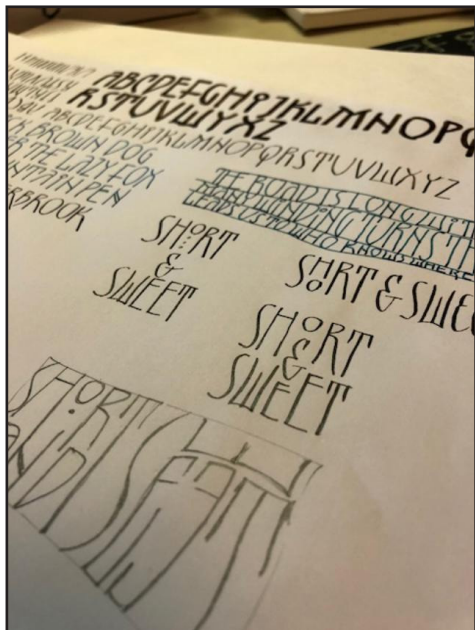 ABCDEFGHIJKLMNOPQ
RSTUVWXYZ
ABCDEFGHIJKLMNOPQRSTUVWXYZ
BROWN DOG
THE LAZY FOX
PEN
THE ROAD IS LONG
WINDING TURNS
LEADS US TO WHO KNOWS WHERE
SHORT
&
SWEET
SHORT &
SHORT
&
SWEET
SHORT
AND SWEET